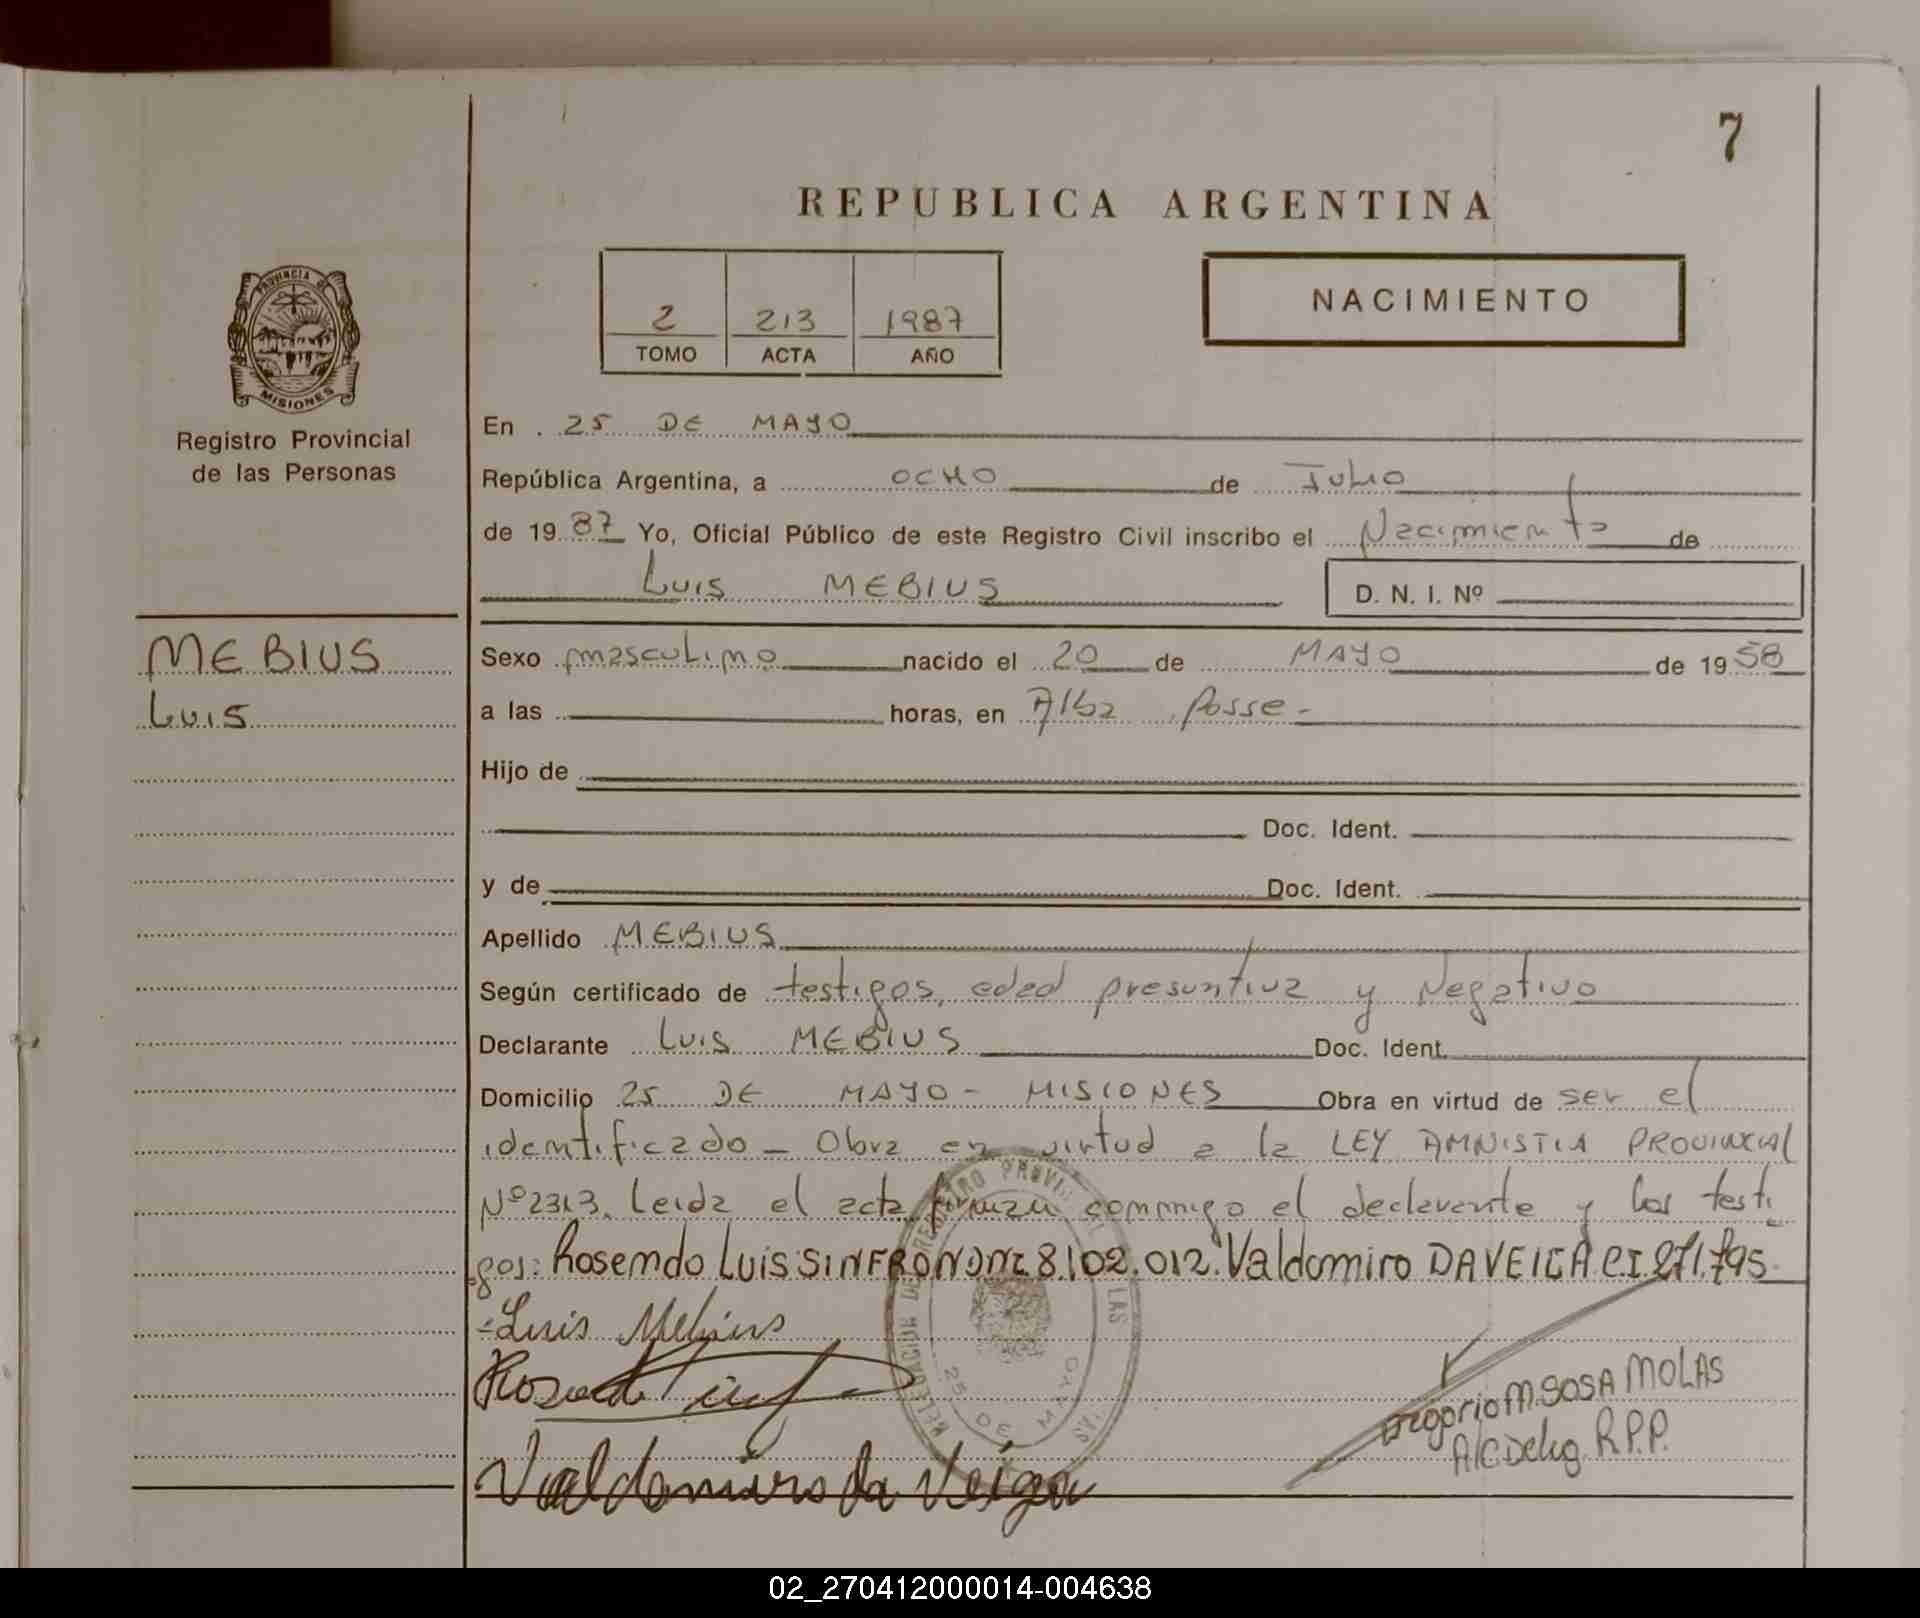 7
REPUBLICA ARGENTINA
PROVINCIA DE
MISIONES
Registro Provincial
de las Personas
2 213 1987
TOMO ACTA AÑO
NACIMIENTO
En 25 DE MAYO
República Argentina, a OCHO de Julio
de 19 87 Yo, Oficial Público de este Registro Civil inscribo el Nacimiento de
Luis MEBIUS D. N. I. Nº
MEBIUS
Luis
Sexo masculino nacido el 20 de MAYO de 19 58
a las horas, en Alba Posse -
Hijo de
Doc. Ident.
y de Doc. Ident.
Apellido MEBIUS
Según certificado de testigos, edad presuntiva y Negativo
Declarante Luis MEBIUS Doc. Ident.
Domicilio 25 DE MAYO - MISIONES Obra en virtud de ser el
identificado - Obra en virtud a la LEY AMNISTIA PROVINCIAL
Nº 2313. Leida el acta firman conmigo el declarante y los testi
gos: Rosendo Luis SINFRON DNI 8.102.012. Valdomiro DAVEIGA CI 271.795
- Luis Mebius
Valdomiro da Veiga
25 DE MAYO
SOSA MOLAS
A/C Deleg. R.P.P.
02_270412000014-004638